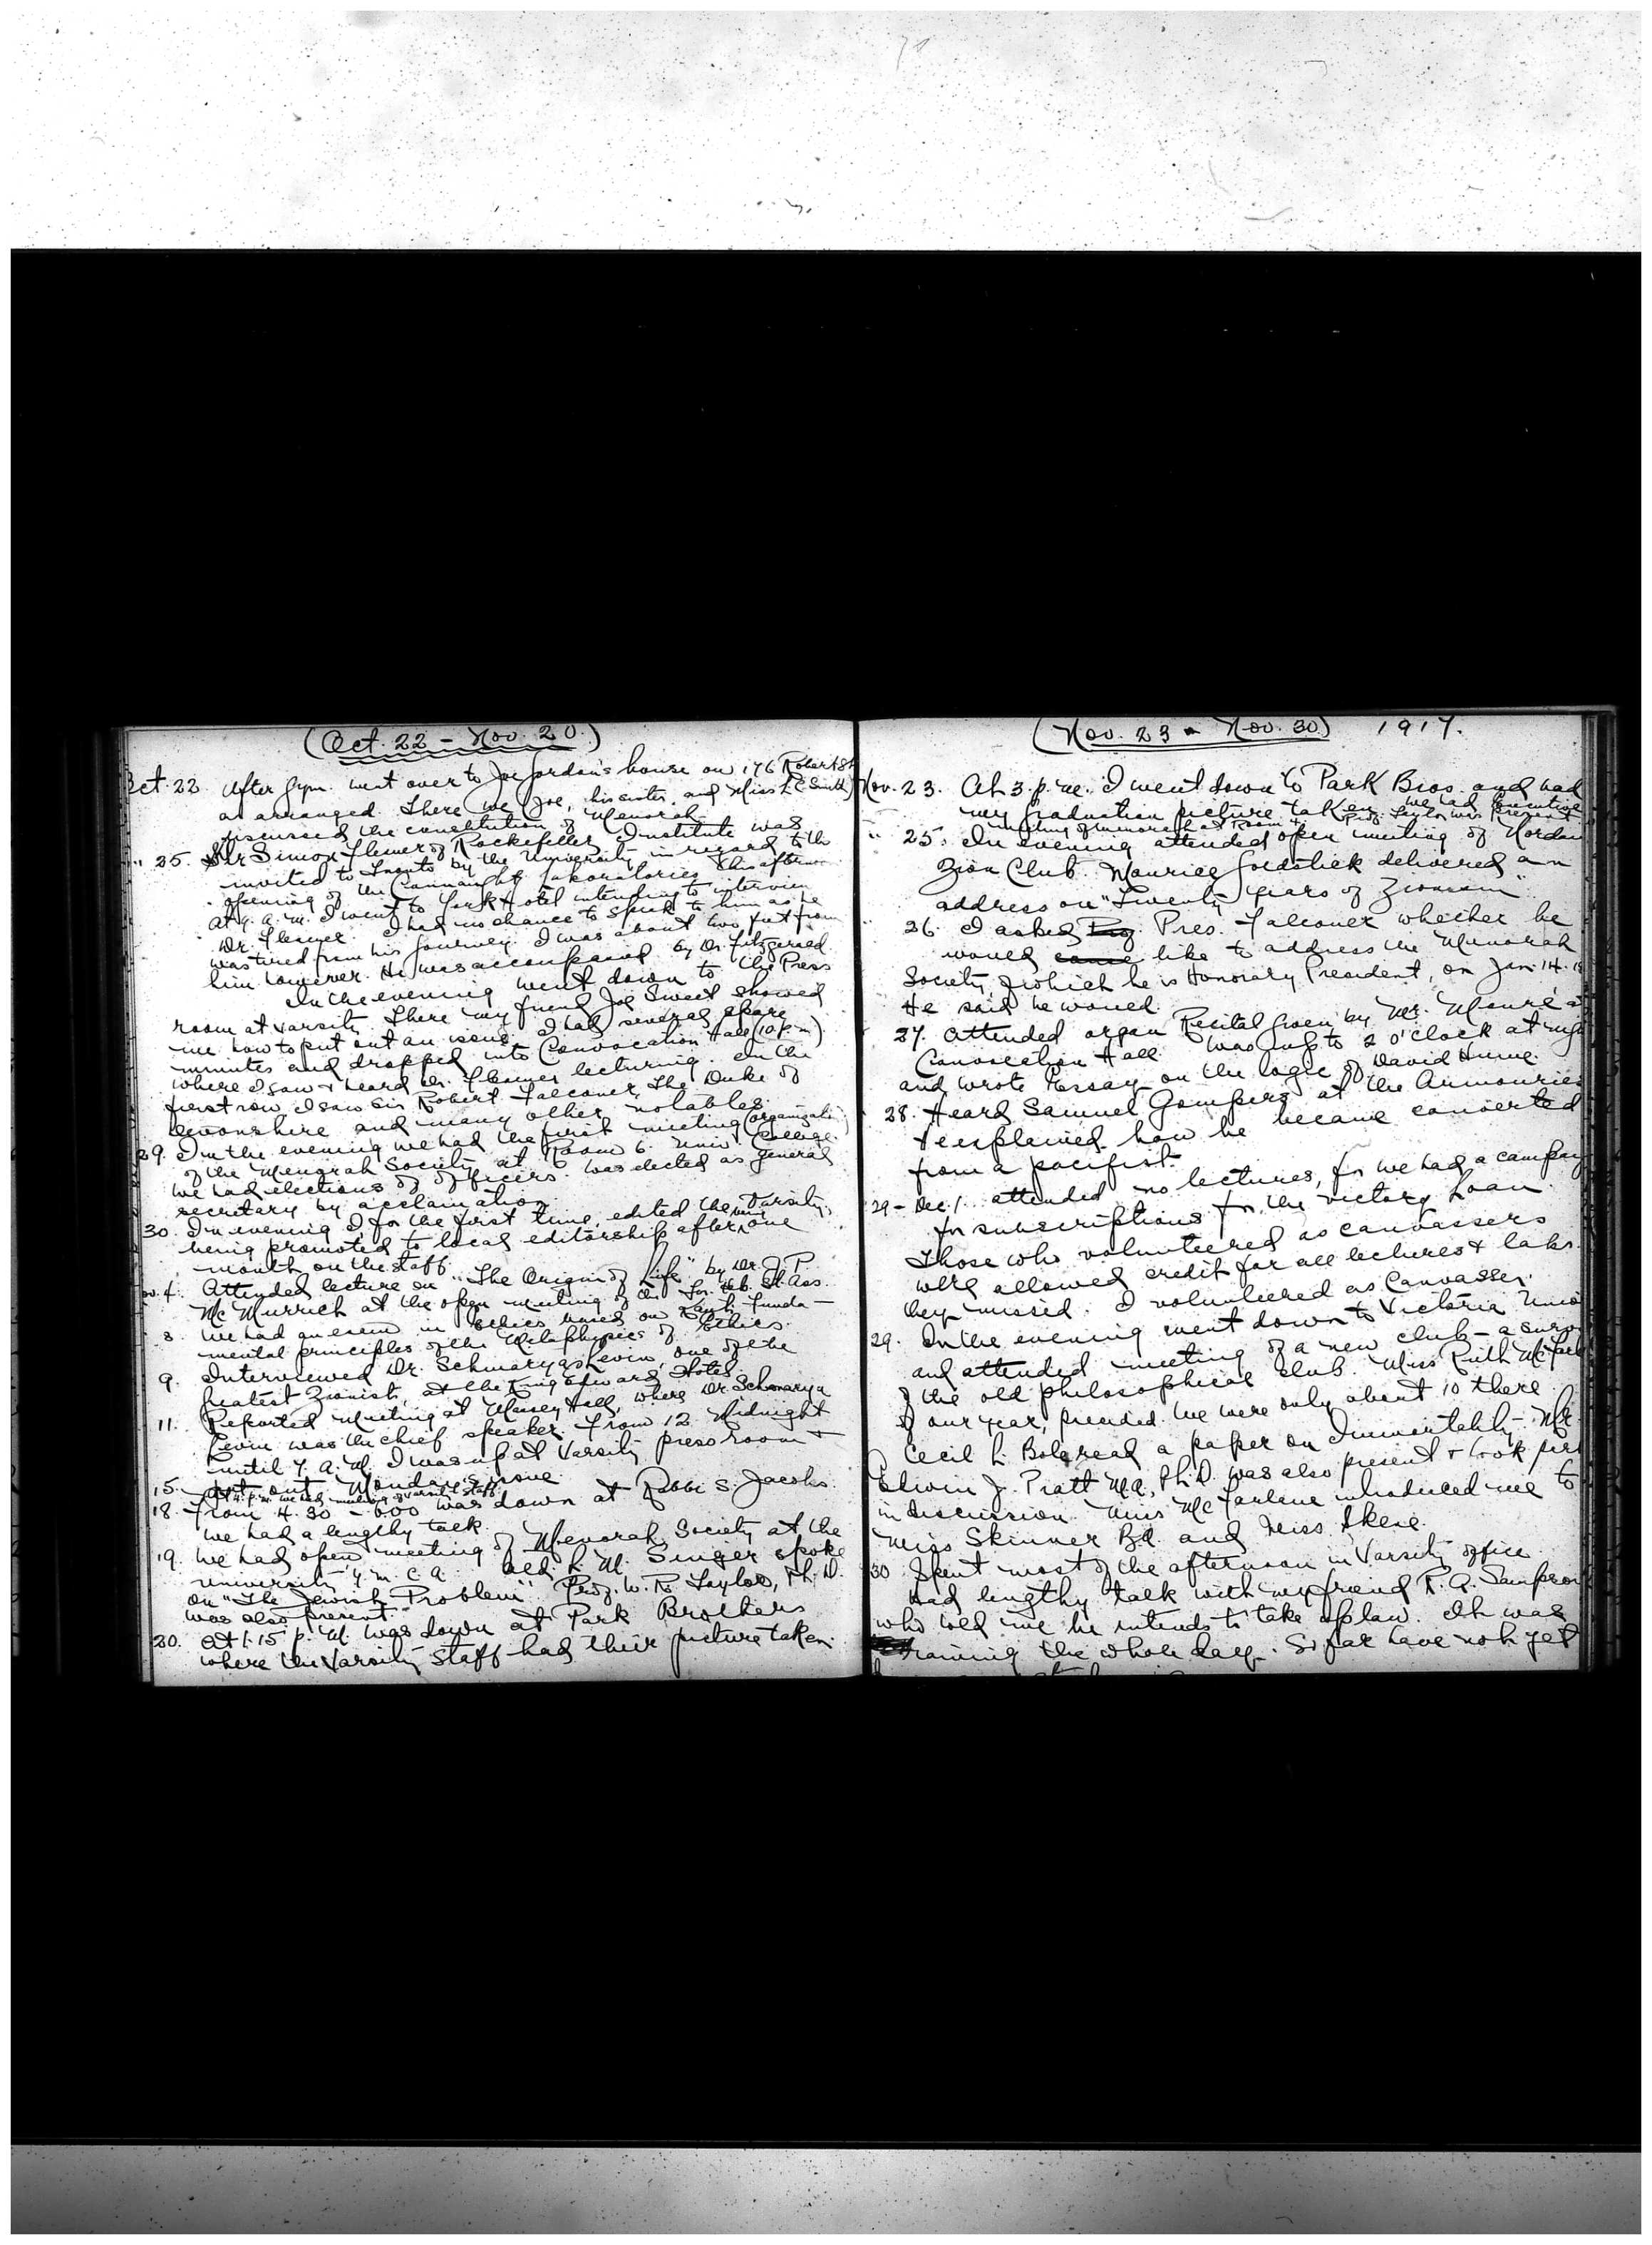 (Oct. 22 - Nov. 20.)
Oct. 22 After Gym. went over to Joe Jordan's house on 176 Robert St
as arranged. There we (Joe, his sister, and Miss L. C. Smith)
discussed the constitution of Menorah.
" 25. Simon Flexner of Rockefeller Institute was
invited to Toronto by the University in regard to the
opening of the Connaught Laboratories this afternoon
At 9. a.m. I went to York Hotel intending to interview
Dr. Flexner. I had no chance to speak to him as he
was tired from his journey. I was about two feet from
him however. He was accompanied by Dr. Fitzgerald.
In the evening went down to the Press
room at Varsity. There my friend Joe Sweet showed
me how to put out an issue. I had several spare
minutes and dropped into Convocation Hall (10 p.m.)
where I saw & heard Dr. Flexner lecturing. In the
first row I saw Sir Robert Falconer, The Duke of
Devonshire and many other notables.
29. In the evening we had the first meeting (organizati
of the Menorah Society at Room 6. Univ. College.
We had elections of officers. Was elected as general
secretary by acclamation.
30. In evening I, for the first time, edited the Varsity,
being promoted to local editorship after one
month on the staff.
Nov. 4. Attended lecture on "The Origin of Life" by Dr. J. P.
McMurrich at the open meeting of the Heb. St. Ass.
8. We had an exam in Ethics based on Kant's Funda-
mental principles of the Metaphysics of Ethics.
9. Interviewed Dr. Schmarya Levin, one of the
greatest Zionists, at the King Edward Hotel.
11. Reported meeting at Massey Hall, where Dr. Schmarya
Levin was the chief speaker. From 12 Midnight
until 7. A. M. I was up at Varsity press room &
put out Monday's issue.
15. At 4. p.m. we had meeting of Varsity staff.
18. From 4.30 - 6.00 was down at Rabbi S. Jacobs.
We had a lengthy talk.
19. We had open meeting of Menorah Society at the
University Y.M.C.A. Ald. L. M. Singer spoke
on "The Jewish Problem". Prof. W. R. Taylor, Ph. D.
was also present.
20. At 1.15 p. M. was down at Park Brothers
where the Varsity Staff had their picture taken.
(Nov. 23 - Nov. 30) 1917.
Nov. 23. At 3. p. m. I went down to Park Bros. and had
my graduation picture taken. We had Executive
meeting of Menorah at Room 4. Prof. Taylor was Present
" 25. In evening attended open meeting of Nordau
Zion Club. Maurice Goldstick delivered an
address on "Twenty years of Zionism".
26. I asked Pres. Falconer whether he
would like to address the Menorah
Society, of which he is Honorary President, on Jan. 14. 18
He said he would.
27. Attended organ Recital given by Mr. Moure at
Convocation Hall. Was up to 2 o'clock at nigh
and wrote Essay on the logic of David Hume.
28. Heard Samuel Gompers at the Armouries
explained how he became converted
from a pacifist.
29 - Dec. 1 attended no lectures, for we had a campaig
for subscriptions for the Victory Loan
Those who volunteered as canvassers
were allowed credit for all lectures & labs
they missed. I volunteered as Canvasser.
29. In the evening went down to Victoria Unive
and attended meeting of a new club - a
of the old philosophical club. Miss Ruth McFarl
of our year, presided. We were only about 10 there.
Cecil L. read a paper on Immortality. Mr.
Edwin J. Pratt M.A., Ph.D. was also present & took part
in discussion. Miss McFarlane introduced me to
Miss Skinner B.A. and Miss Skene.
30 Spent most of the afternoon in Varsity office
Had lengthy talk with my friend R. A. Sampson
who told me he intends to take up law. It was
raining the whole day. So far have not yet